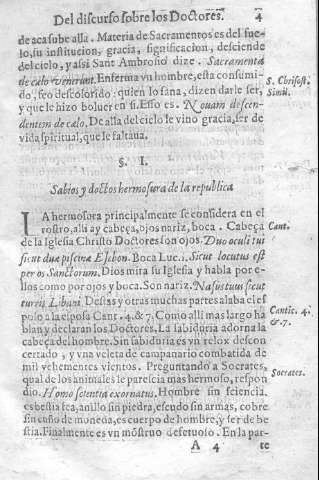 Del discurso sobre los Doctores. 4
de aca sube alla. Materia de Sacramentos es del sue-
lo, su institucion, gracia, significacion, desciende
del cielo, y assi Sant Ambrosio dize. Sacramenta
de cælo venerunt. Enferma vn hombre, esta consumi-
do, feo descolorido: quien lo sana, dizen darle ser,
y que le hizo boluer en si. Esso es. Nouam descen-
dentem de cælo. De alla del cielo le vino gracia, ser de
vida spiritual, que le faltaua.
S. Chrisost.
Simil.
§. I.
Sabios y doctos hermosura de la republica
LA hermosura principalmente se considera en el
rostro, alli ay cabeça, ojos nariz, boca. Cabeça
de la Iglesia Christo Doctores son ojos. Duo oculi tui
sicut duæ piscinæ Esebon. Boca Luc. 1. Sicut locutus est
per os Sanctorum. Dios mira su Iglesia y habla por e-
llos como por ojos y boca. Son nariz. Nasus tuus sicut
turris Libani. Destas y otras muchas partes alaba el es
poso a la esposa Cant. 4. & 7. Como alli mas largo ha
blan y declaran los Doctores. La sabiduria adorna la
cabeça del hombre. Sin sabiduria es vn relox descon
certado, y vna veleta de campanario combatida de
mil vehementes vientos. Preguntando a Socrates,
qual de los animales le parescia mas hermoso, respon
dio. Homo scientia exornatus. Hombre sin sciencia,
es bestia fea, anillo sin piedra, escudo sin armas, cobre
sin cuño de moneda, es cuerpo de hombre, y ser de be
stia. Finalmente es vn mõstruo defetuoso. En la par-
Cant.
Cantic. 4.
& 7.
Socrates.
A 4 te